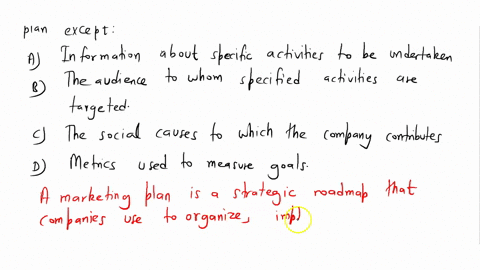 plan except:
A) Information about specific activities to be undertaken
B) The audience to whom specified activities are
targeted.
C) The social causes to which the company contributes
D) Metrics used to measure goals.
A marketing plan is a strategic roadmap that
companies use to organize, impl